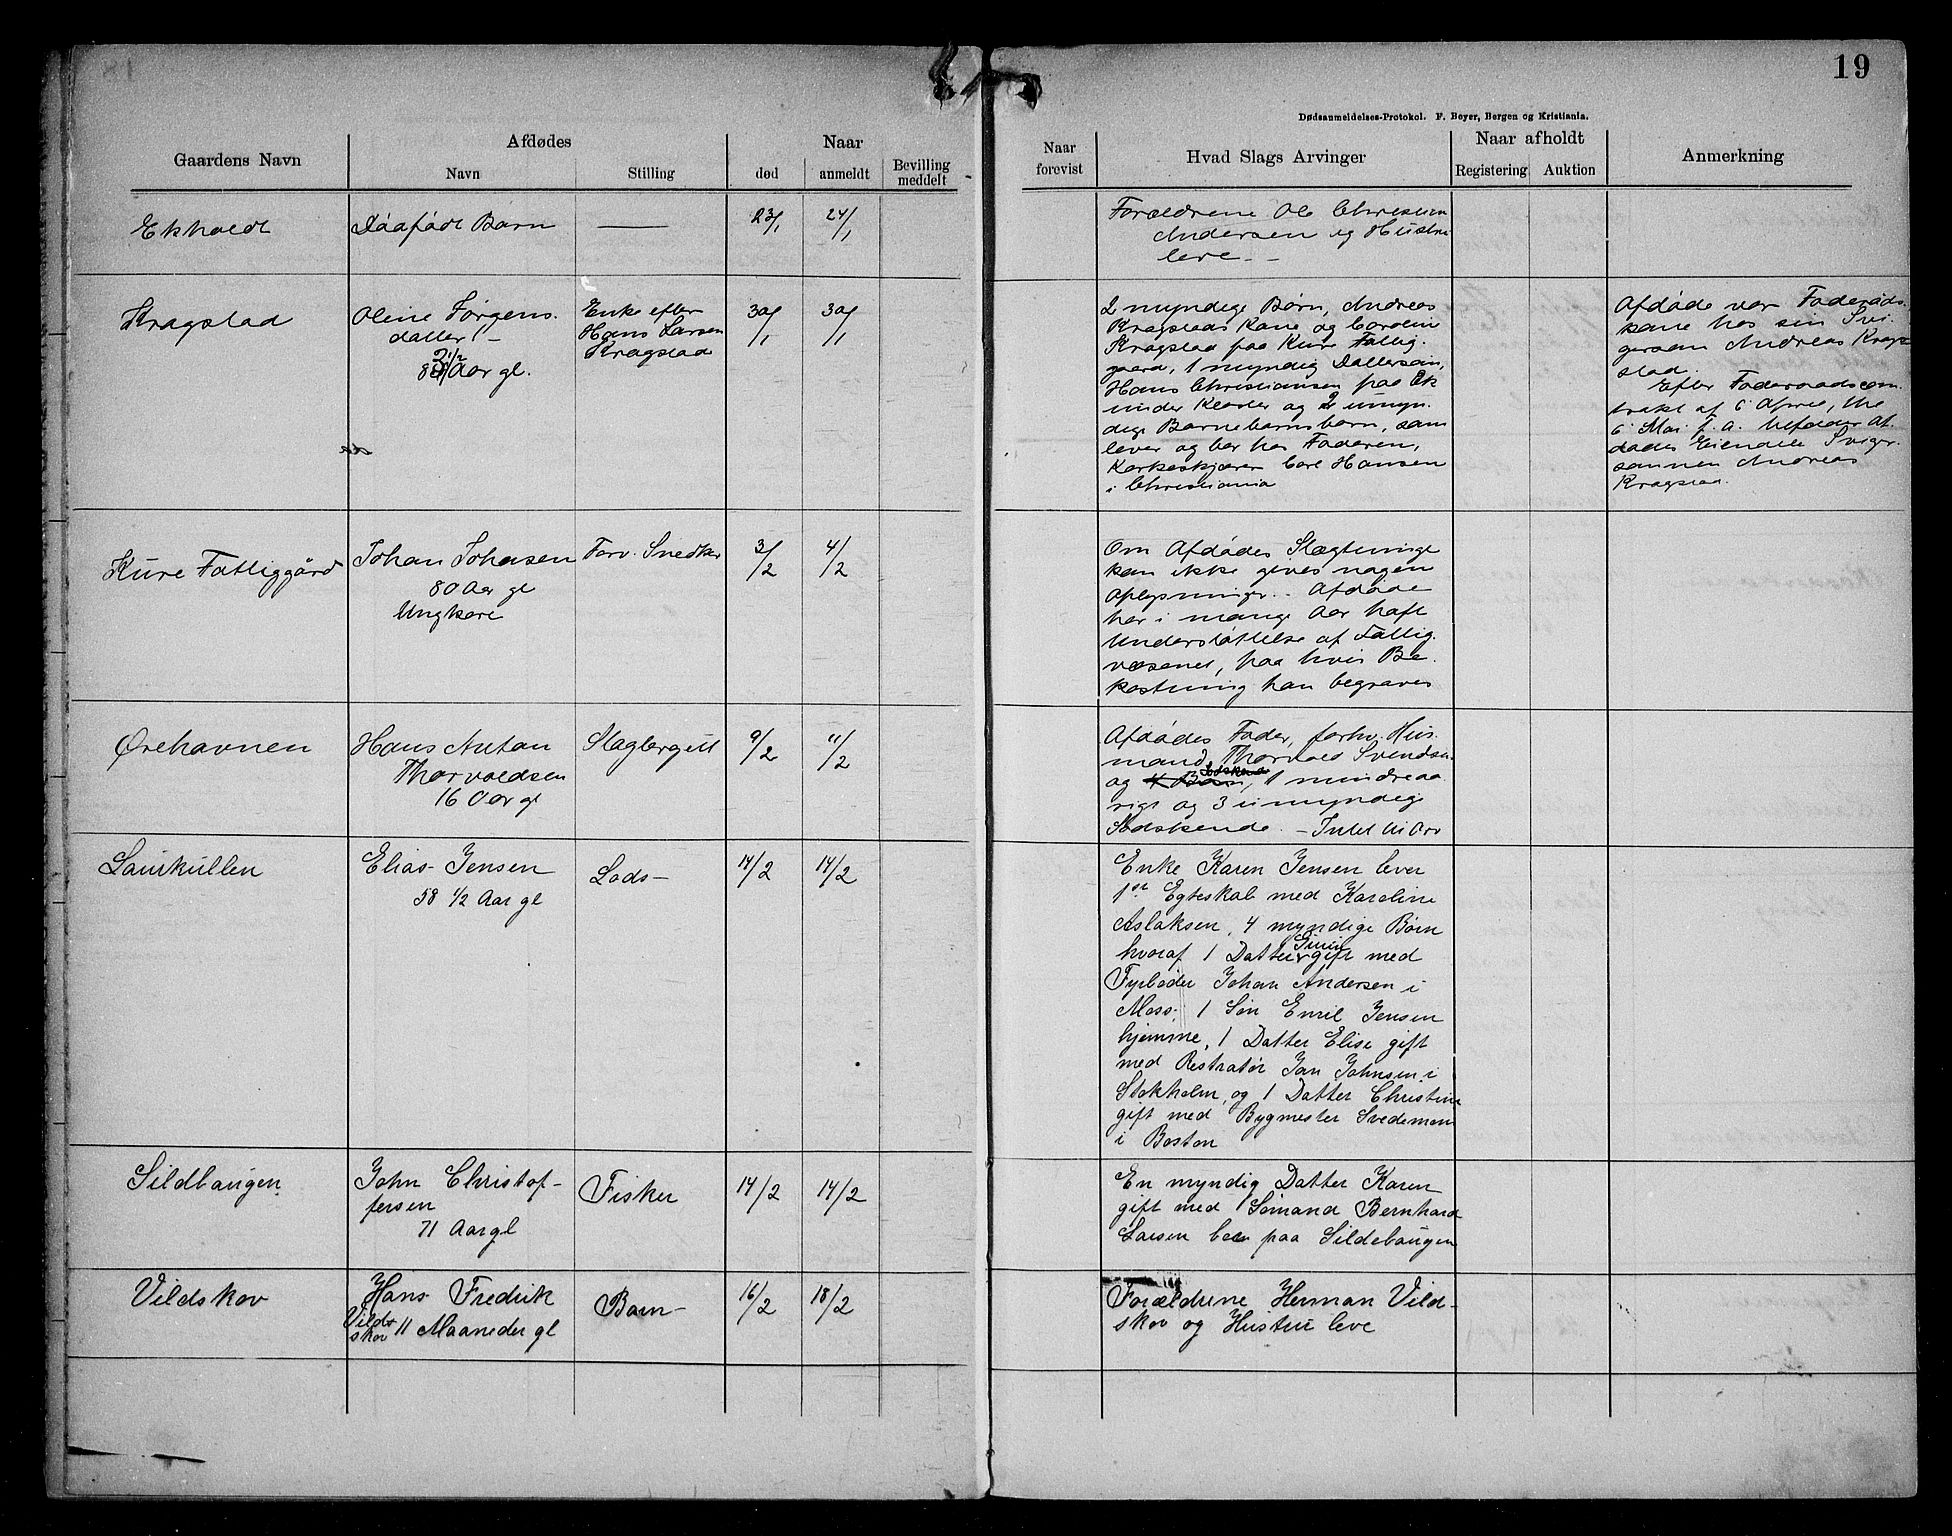 19
Dødsanmeldelses-Protokol. F. Beyer, Bergen og Kristiania.
Gaardens Navn
Afdødes
Navn
Stilling
Naar
død
anmeldt
Bevilling
meddelt
Naar
forevist
Hvad Slags Arvinger
Naar afholdt
Registering
Auktion
Anmerkning
Ekholdt
Dødfødt Barn
23/1
24/1
Forældrene Ole Christian
Andersen og Hustru
leve. -
Kragstad
Oline Jørgens.
datter -
Aar gl.
Enke efter
Hans Larsen
Kragstad
30/1
30/1
2 myndige Børn, Andreas
Kragstads Kone og Cordelin
Kragstad paa Kure Fattig.
gaard, 1 myndig Dattersøn,
Hans Christiansen paa Ek
under Kloster og 2 umyn.
dige Barnebarnsbarn, som
lever og bor hos Faderen,
Korkeskjærer Carl Hansen
i Christiania
Afdøde var Føderåds.
kone hos sin Svi.
gersøn Andreas Krag
stad.
Efter Føderaadscon.
trakt af 6 April, thl
6 Mai f. a. tilfalder af.
dødes Eiendele Sviger.
sønnen Andreas
Kragstad.
Kure Fattiggård
Johan Johnsen
80 Aar gl
Ungkare
Forv. Snedker
3/2
4/2
Om Afdødes Slægtninge
kan ikke gives nogen
Oplysninger. - Afdøde
har i mange Aar haft
Understøttelse af Fattig.
væsenet, paa hvis Be.
kostning han begraves
Ørehavnen
Hans Anton
Thorvaldsen
16 Aar gl
Slagtergut
9/2
11/2
Afdødes Fader, forhv. Hus.
mand Thorvald Svendsen
og 4 Børn, 1 mindreaa
rige og 3 umyndige
Sødskende. - Intet til Arv
Laurkullen
Elias Jensen
58 1/2 Aar gl
Lods -
14/2
14/2
Enke Karen Jensen lever
1ste Egteskab med Karoline
Aslaksen, 4 myndige Børn
hvoraf 1 Datter gift med
Fyrbøder Johan Andersen i
Moss, 1 Søn Emil Jensen
hjemme, 1 Datter Elise gift
med Restratør Jan Johnsen i
Stokholm, og 1 Datter Christine
gift med Bygmester Svedeman
i Boston
Sildbaugen
John Christof-
fersen
71 Aar gl
Fisker
14/2
14/2
En myndig Datter Karen
gift med Sømand Bernhard
Larsen bor paa Sildebaugen
Vildskov
Hans Fredrik
Vild-
skov 11 Maaneder gl
Barn -
16/2
18/2
Forældrene Herman Vild-
skov og Hustru leve